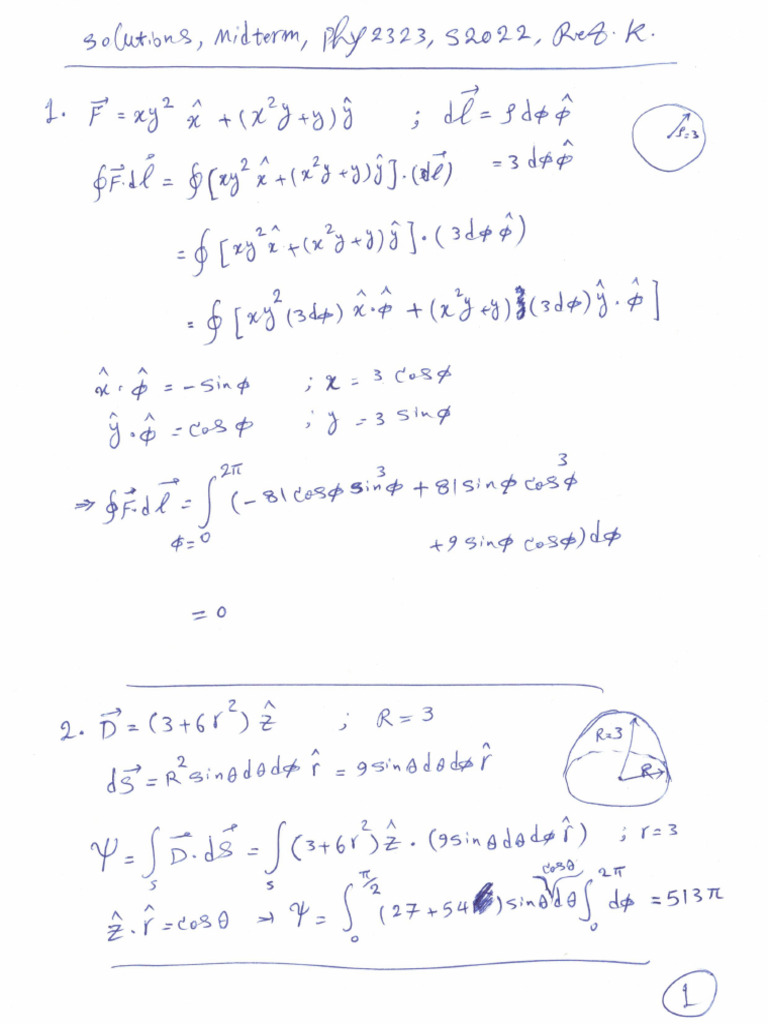 solutions, Midterm, Phy2323, S2022, Ref. K.
1. F⃗ = xy² x̂ + (x²y+y) ŷ ; dl⃗ = ρ dϕ ϕ̂
ρ=3
∮F⃗.dl⃗ = ∮[xy² x̂ + (x²y+y) ŷ]·(dl⃗) = 3 dϕ ϕ̂
= ∮[xy² x̂ + (x²y+y) ŷ]·(3dϕ ϕ̂)
= ∮[xy²(3dϕ) x̂·ϕ̂ + (x²y+y)(3dϕ) ŷ·ϕ̂]
x̂·ϕ̂ = -sinϕ ; x = 3 cosϕ
ŷ·ϕ̂ = cosϕ ; y = 3 sinϕ
⇒ ∮F⃗.dl⃗ = ∫_{ϕ=0}^{2π} (-81cosϕ sin³ϕ + 81sinϕ cos³ϕ
+9 sinϕ cosϕ)dϕ
= 0
2. D⃗ = (3+6r²) ẑ ; R=3
R=3
R
ds⃗ = R² sinθdθdϕ r̂ = 9sinθdθdϕ r̂
Ψ = ∫_s D⃗.ds⃗ = ∫_s (3+6r²) ẑ · (9sinθdθdϕ r̂) ; r=3
ẑ·r̂ = cosθ → Ψ = ∫_0^{π/2} (27+54) sinθ cosθ dθ ∫_0^{2π} dϕ = 513π
1